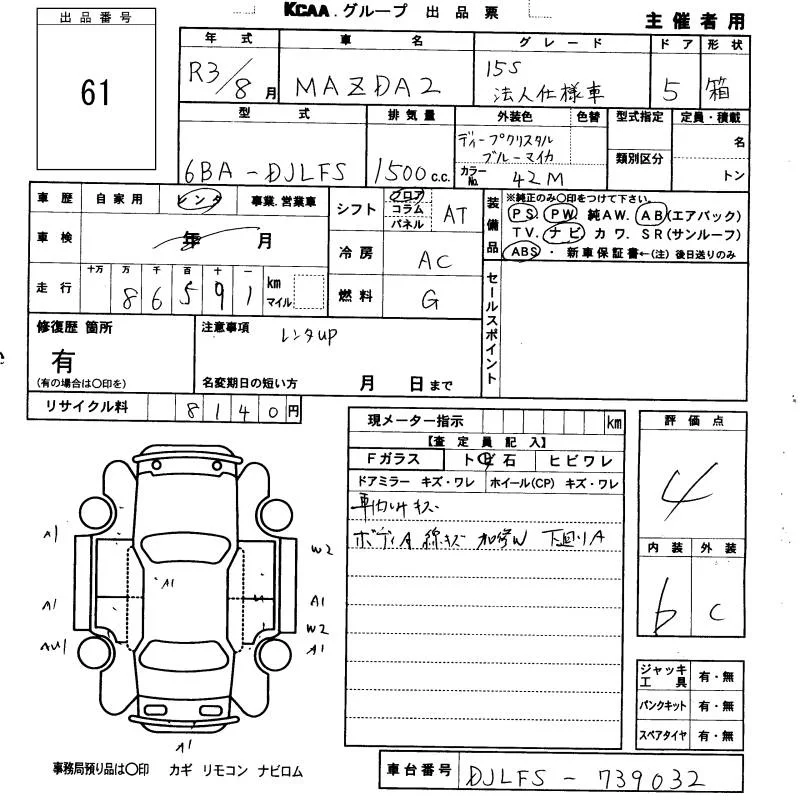 KCAA.グループ 出品票
主催者用
出品番号
61
年式 車名 グレード ドア 形状
R3/8月 MAZDA2 15S 法人仕様車 5 箱
型式 排気量 外装色 色替 型式指定 定員・積載
6BA-DJLFS 1500c.c. ディープクリスタルブルーマイカ 名
類別区分
カラーNo. 42M トン
車歴 自家用 レンタ 事業.営業車
シフト フロア コラム パネル AT
装備品
※純正のみ〇印をつけて下さい。
PS. PW. 純AW. AB(エアバック)
TV. ナビ カワ. SR(サンルーフ)
ABS・ 新車保証書←(注)後日送りのみ
車検 年 月
冷房 AC
走行 十万 万 千 百 十 一
86591 km マイル
燃料 G
セールスポイント
修復歴 箇所
有
(有の場合は〇印を)
注意事項 レンタup
名変期日の短い方 月 日まで
リサイクル料 8140円
現メーター指示 km
【査定員記入】
Fガラス ト 石 ヒビワレ
ドアミラー キズ・ワレ ホイール(CP) キズ・ワレ
ボディA 線キズ W 下廻りA
評価点
4
内装 外装
b C
A1
W2
A1
A1
A1
W2
AU1
A1
A1
ジャッキ工具 有・無
パンクキット 有・無
スペアタイヤ 有・無
事務局預り品は〇印 カギ リモコン ナビロム
車台番号 DJLFS-739032